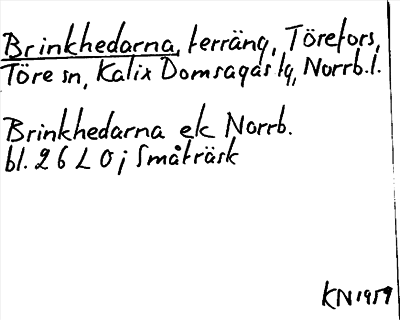 Brinkhedarna, terräng, Törefors,
Töre sn, Kalix Domsagas tg, Norrb.l.
Brinkhedarna ek Norrb.
bl. 26 L 0j Småträsk
KN 1959